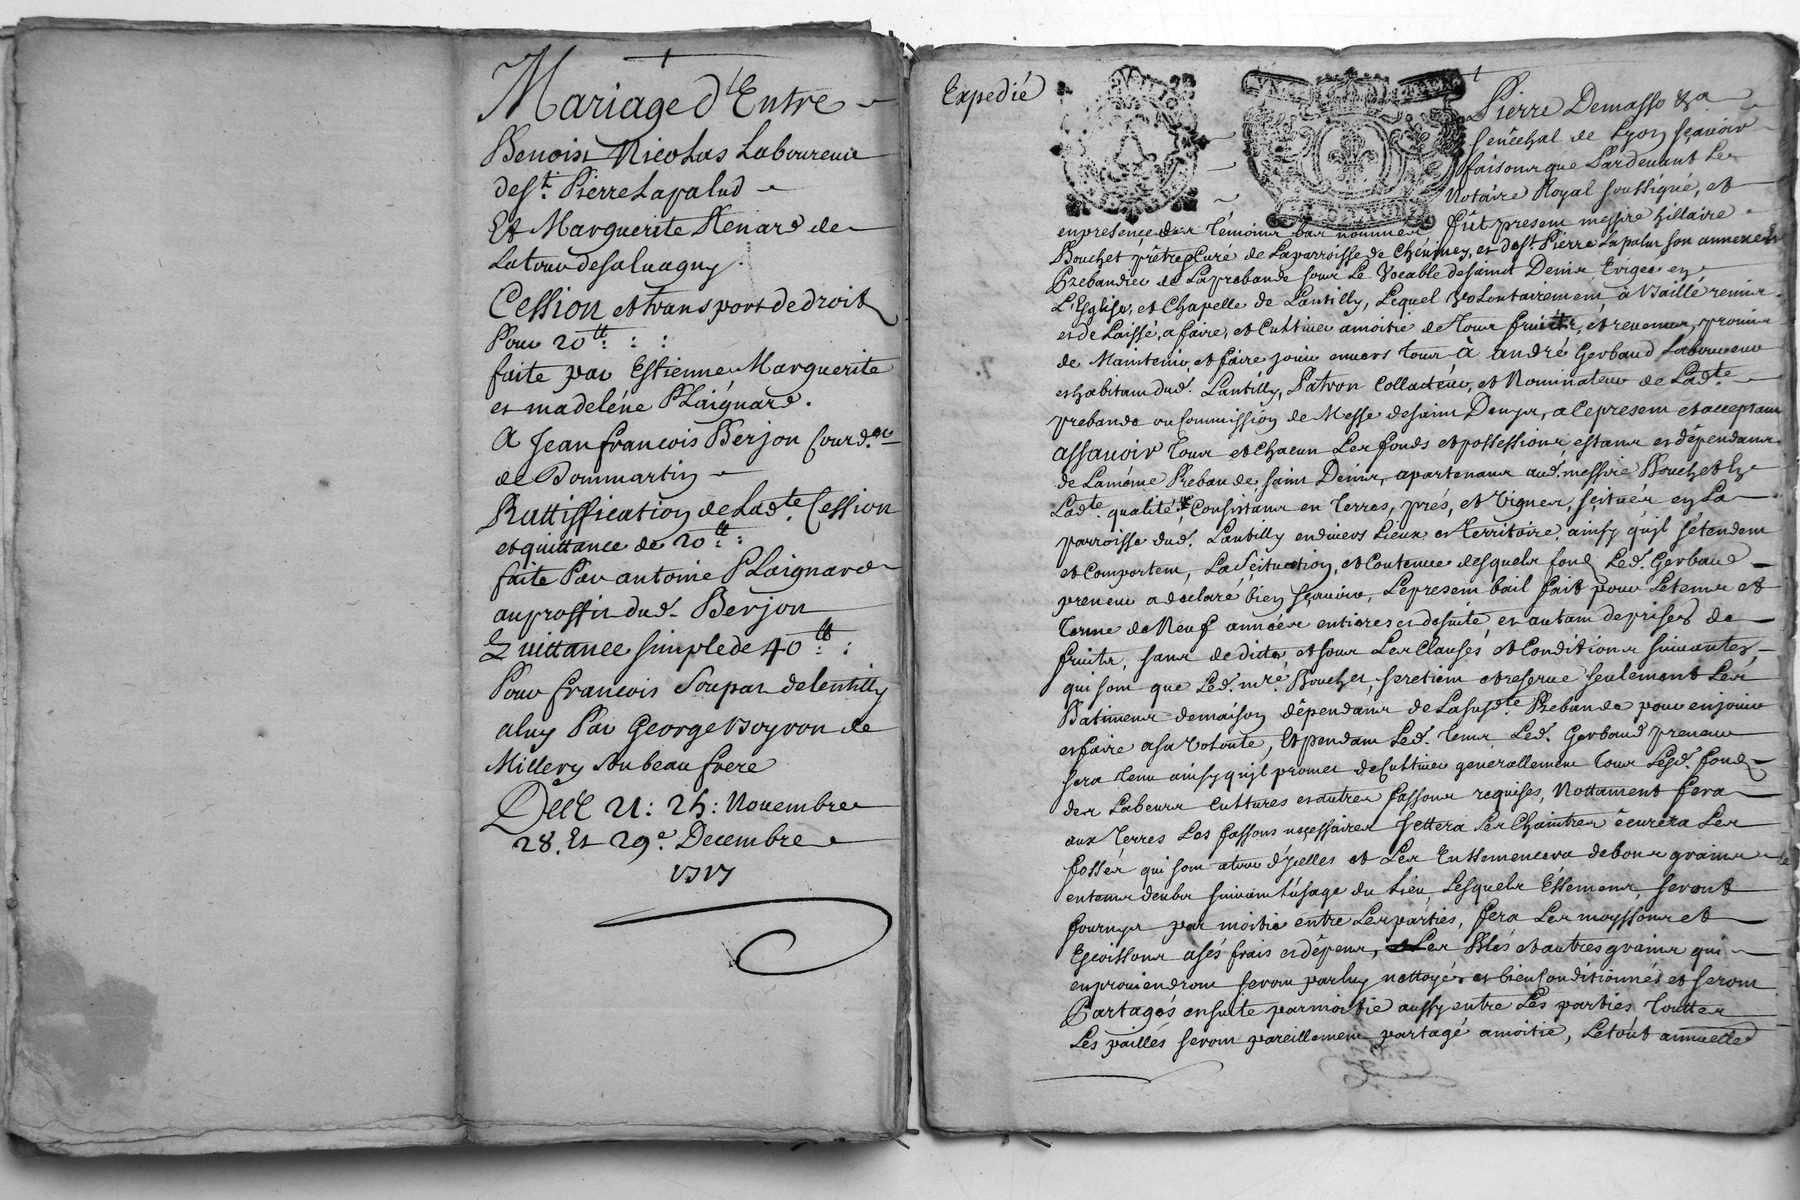 Mariage d'Entre
Benoist Nicolas Laboureur
de St. Pierre Lapalud
Et Marguerite Renard de
Latour de salvagny.
Cession et transport de droit
Pour 20tt : : :
faite par Estienne Marguerite
et madeléne PLaignard.
A Jean francois Berjon Courd.er
de Dommartin
Rattiffication de Lad.te Cession
et quittance de 20tt :
faite Par antoine PLaignard
au proffit dud. Berjon
Quittance simple de 40tt :
Pour francois Soupat de lentilly
a luy Par George Boyron de
Millery son beau frere
De[s] 21 : 25 : Novembre
28. Et 29e. Decembre
1717
Expedié
Pierre Demasso &a
senêchal de Lyon sçavoir
faisons que Pardevant Le
Notaire Royal soussigné, et
en presence des témoins bas nommés fût present messire hillaire
Bouchet prêtre Curé de La parroisse de Chévinay, et de St. Pierre Lapalus son annexe et
Prebandier de La prebande sous Le Vocable de saint Denis Erigée en
L'Eglise, et Chapelle de Lantilly, Lequel Volontairement à Baillé remis
et de Laissé, a faire, et Cultiver a moitié de tous fruits, et revenus, promis
de Maintenir et faire jouir envers tous à andré Gerbaud Laboureur
et habitant dud. Lantilly, Patron Collacteur, et Nominateur de Lad.te
prebande ou Commission de Messe de saint Denys, a Ce present et acceptant
assavoir tous et chacun Les fonds et possessions, estans et dépendans
de La même Prebande saint Denis, apartenans aud. messire Bouchet En
Lad.te qualité, Consistans en terres, prés, et vignes, scitués en La
parroisse dud. Lantilly en divers Lieux et territoire, ainsy qu'jl s'étendent
et comportent, La Scituation, et Contenue desquels fond Led. Gerbaud
preneur a déclaré bien sçavoir, Le present bail fait pour Le tems et
terme de Neuf années entieres et de suite, et autant de prises de
fruits, sans de ditte, et sous Les Clauses et Conditions suivantes,
qui sont que Led. mre. Bouchet, se retient et reserve seulement Les
Batimens de maison dépendans de La susd.te Prebande pour en jouir
et faire a sa volonté, Et pendant Led. tems, Led. Gerbaud preneur
sera tenu ainsy qu'jl promet de Cultiver generallement tous Lesd. fond
des Labeurs Cultures et autres fassons requises, Nottament fera
aux Terres Les fassons necessaires Jettera Les Chaintres écurera Les
fossés qui sont au tour d'jcelles et Les Enssemencera de bons grains
en tems deubs suivant L'usage du Lieu, Lesquels Essemens, seront
fournys par moitié entre Les parties, fera Les moyssons et
Escossons a sés frais et dépens, Les Blés et autres grains qui
en proviendront seront par luy nettoyés et bien Conditionnés et seront
Partagés ensuite par moitié aussy entre Les parties, Touttes
Les paillés seront pareillement partagé a moitié, Le tout annuelle